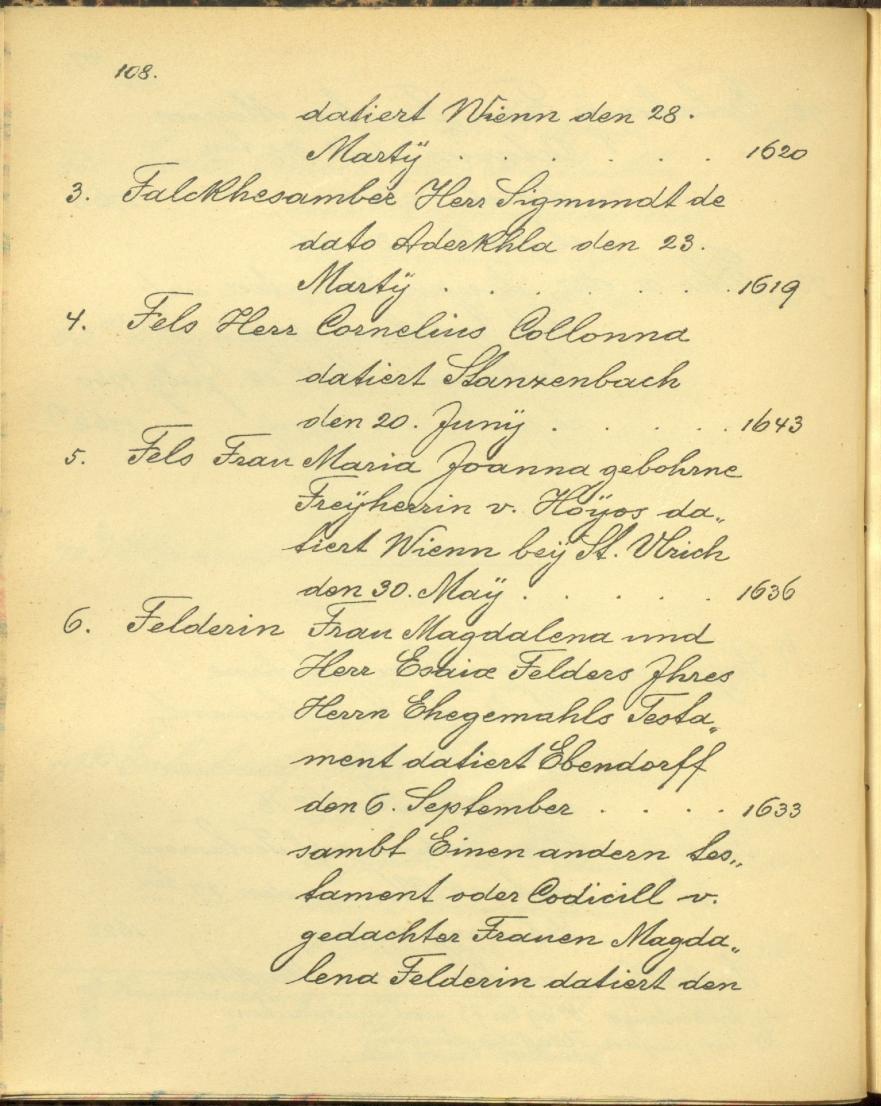 108.
datiert Wienn den 28.
Martÿ . . . . . . . 1620
3. Falckhesamber Herr Sigmundt de
dato Aderkhla den 23.
Martÿ . . . . . . . 1619
4. Fels Herr Cornelius Collonna
datiert Stanzenbach
den 20. Junÿ . . . . . 1643
5. Fels Frau Maria Joanna gebohrne
Freÿherrin v. Hoÿos da„
tiert Wienn beÿ St. Ulrich
den 30. Maÿ . . . . . 1636
6. Felderin Frau Magdalena und
Herr Esaiæ Felders Ihres
Herrn Ehegemahls Testa„
ment datiert Ebendorff
den 6. September . . . . 1633
sambt Einen andern tes„
tament oder Codicill v.
gedachter Frauen Magda„
lena Felderin datiert den